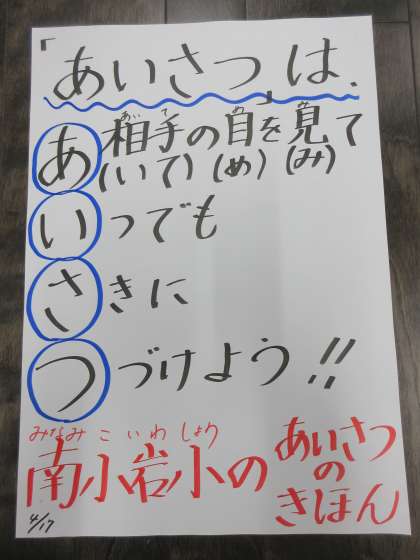 「あいさつ」は、
あいて め み
あ相手の目を見て
(いて)(め)(み)
いつでも
さきに
つづけよう!!
みなみこいわしょう
南小岩小の
あいさつ
の
きほん
4/17